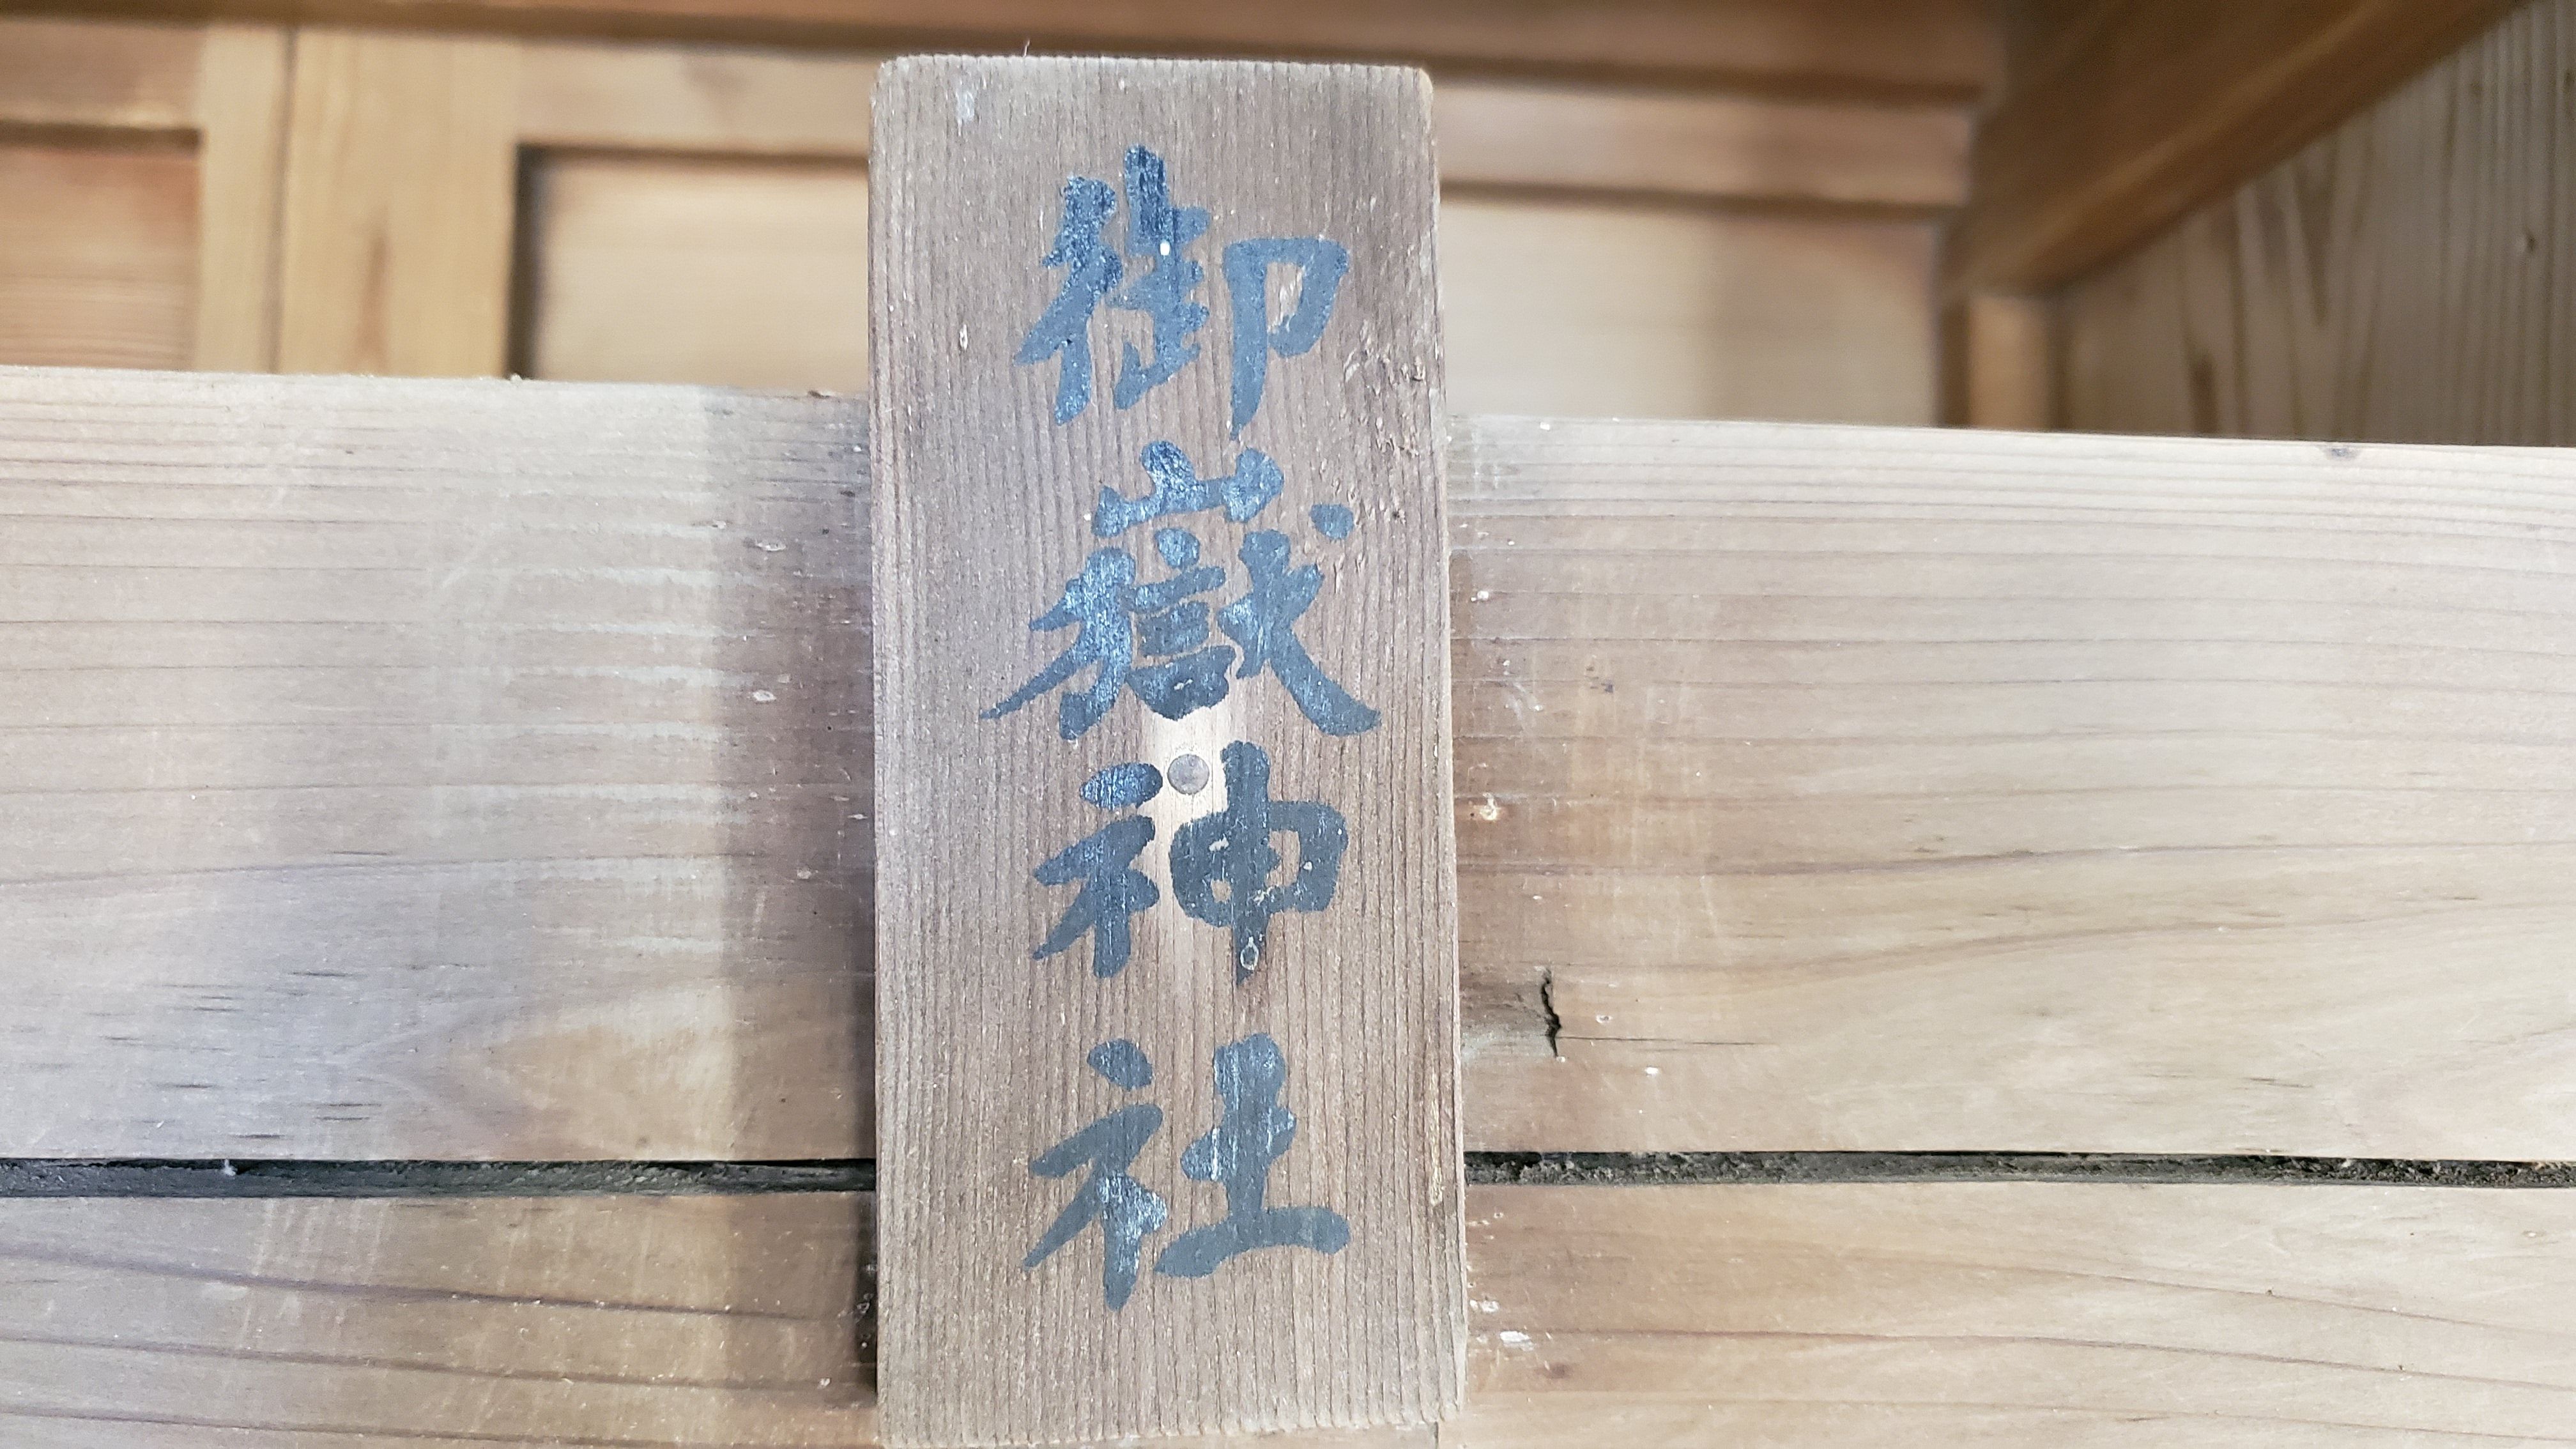 御嶽神社